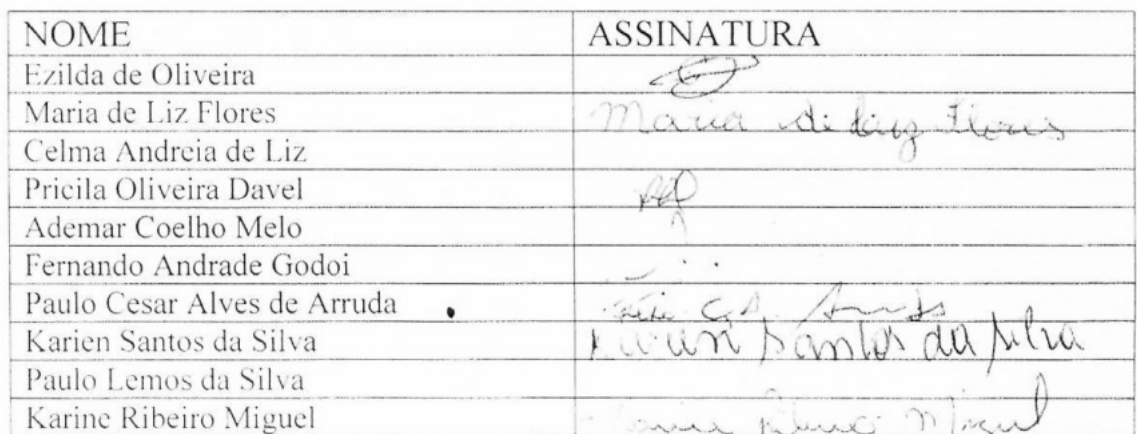 NOME ASSINATURA
Ezilda de Oliveira
Maria de Liz Flores Maria de Liz Flores
Celma Andreia de Liz
Pricila Oliveira Davel
Ademar Coelho Melo
Fernando Andrade Godoi
Paulo Cesar Alves de Arruda
Karien Santos da Silva Karien Santos da Silva
Paulo Lemos da Silva
Karine Ribeiro Miguel Karine Ribeiro Miguel